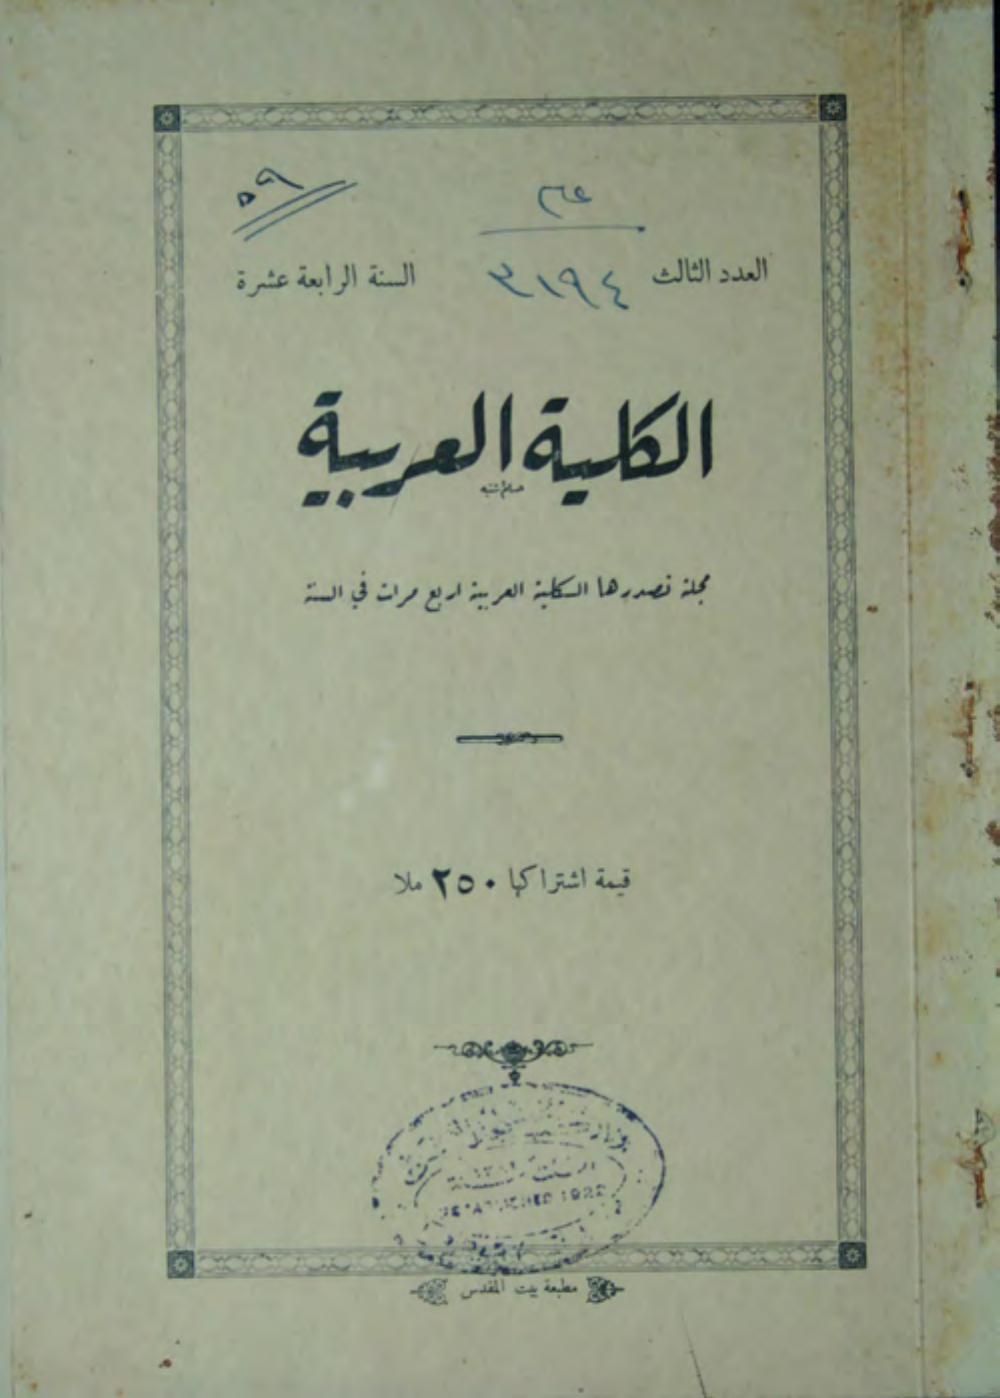 ٥٩
العدد الثالث ٣١٩٤ السنة الرابعة عشرة
الكلية العربية
مجلة تصدرها الكلية العربية اربع مرات في السنة
قيمة اشتراكها ٢٥٠ ملا
ESTABLISHED 1922
مطبعة بيت المقدس